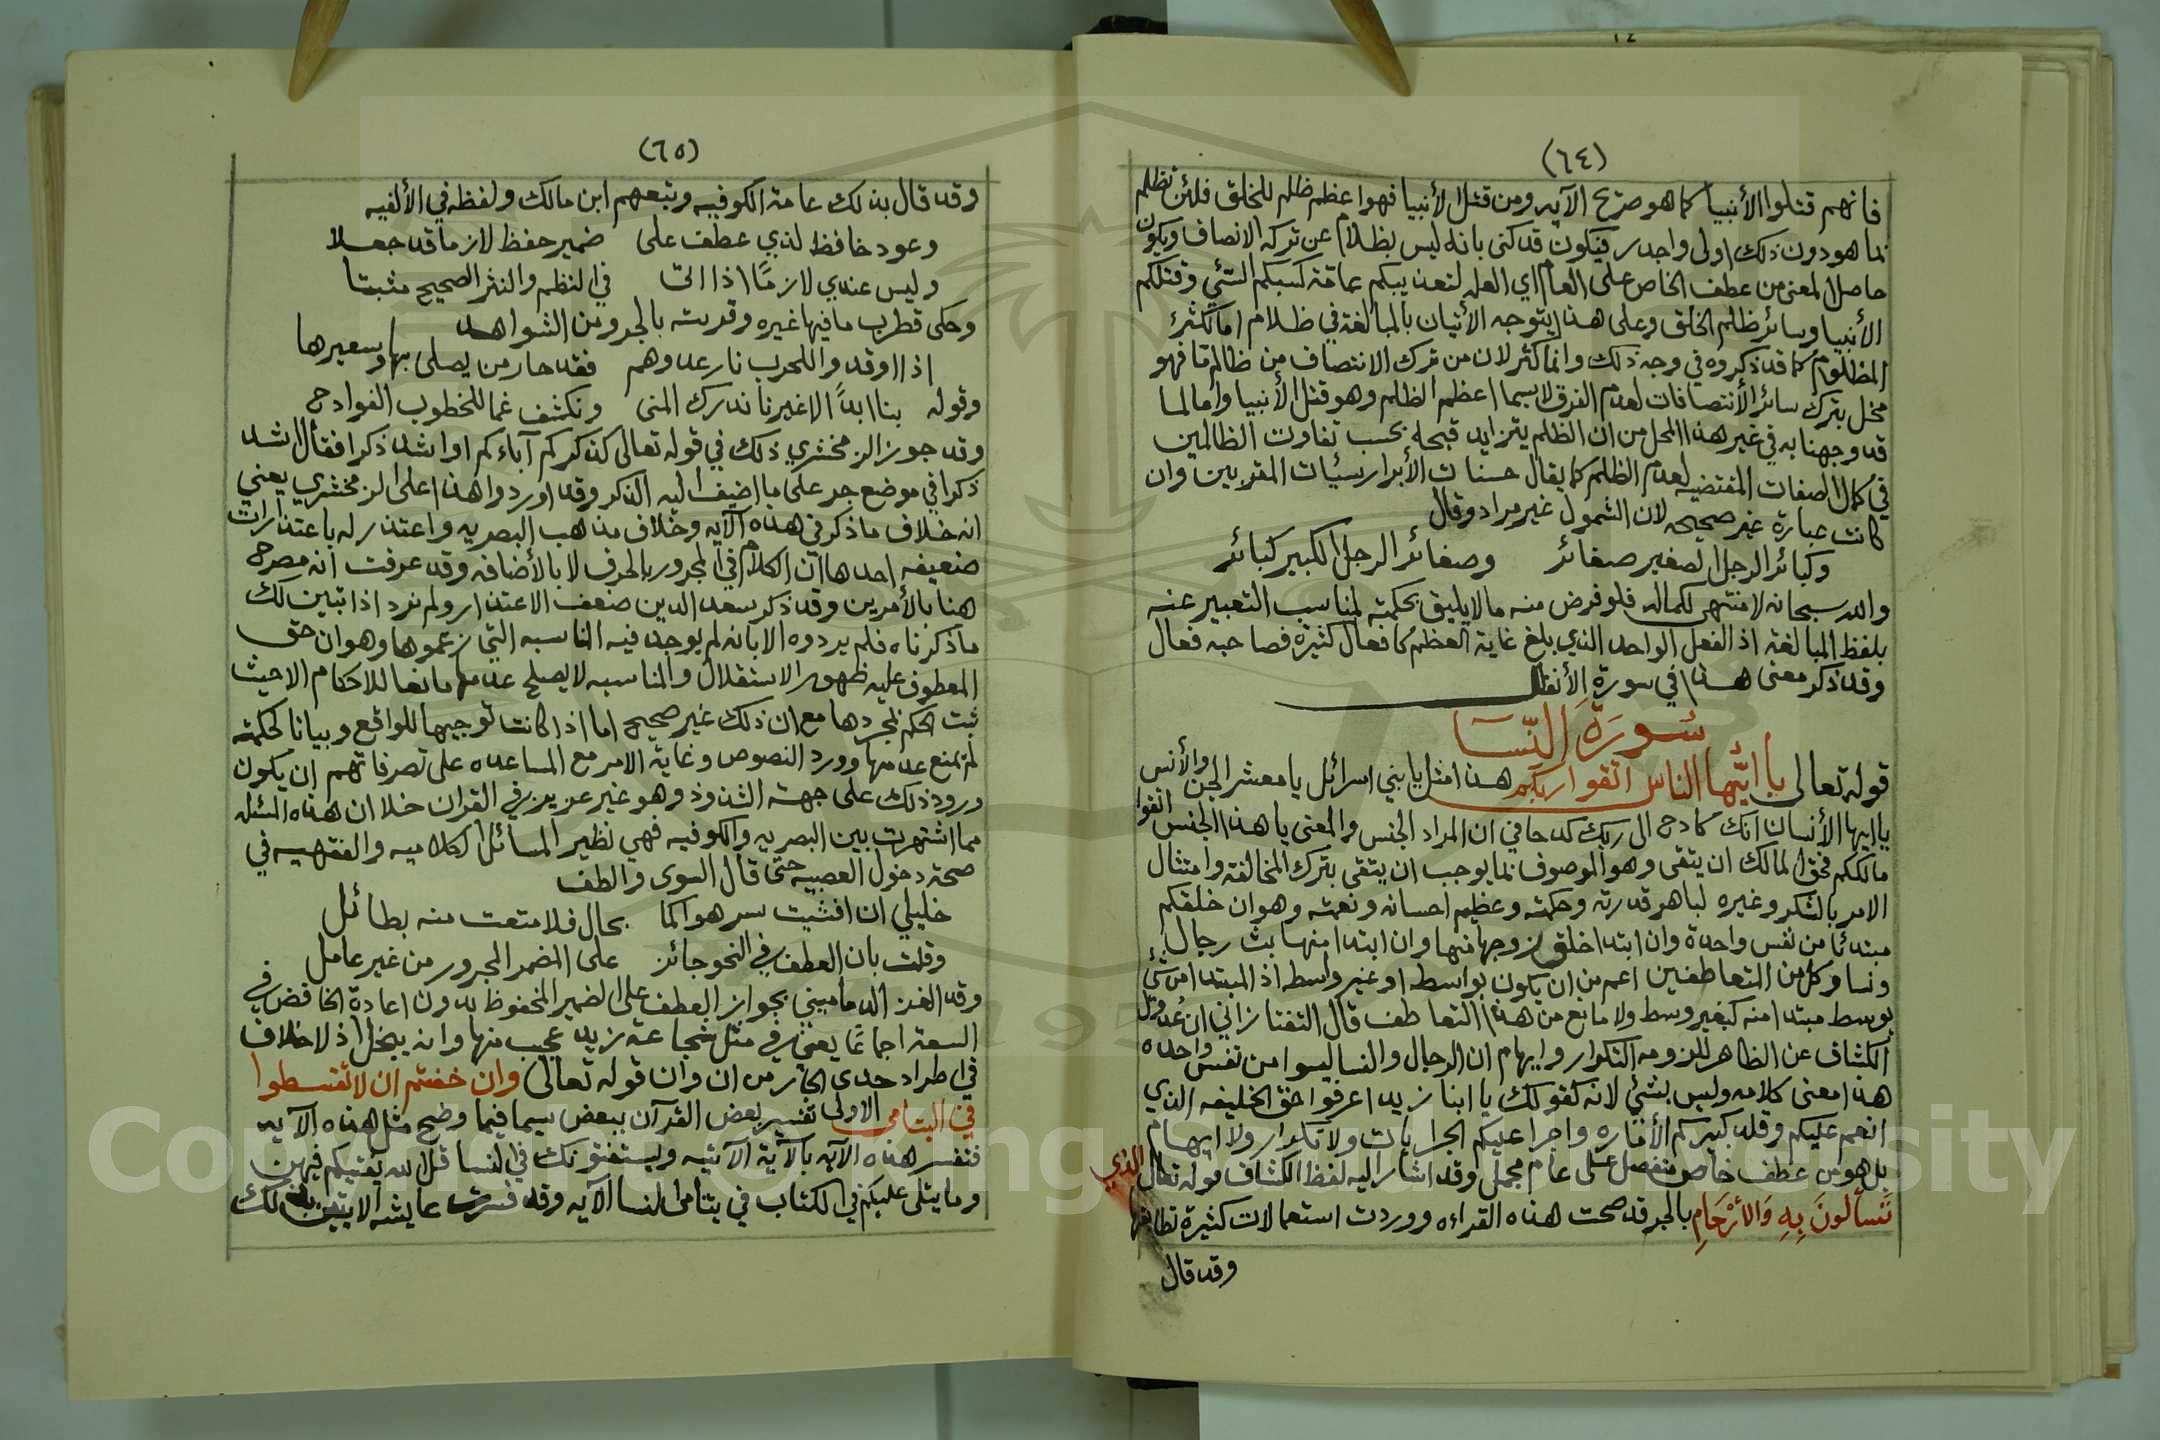 (٦٤)
فانهم قتلوا الأنبيا كما هو صريح الآيه ومن قتل الأنبيا فهو اعظم ظلم للخلق فلئن تظلم
بما هو دون ذلك اولى واجدر فيكون قد كنى بانه ليس بظلام عن تركه الانصاف ويكون
حاصل المعنى من عطف الخاص على العام اي العله لتعذيبكم عامة كسبكم السئي وقتلكم
الأنبيا وسائر ظلم الخلق وعلى هذا يتوجه الأتيان بالمبالغة في ظلام اما لكثرة
المظلوم كما قد ذكروه في وجه ذلك وانما كثر لان من ترك الانتصاف من ظالم ما فهو
مخل بترك سائر الأنتصافات لعدم الفرق لا سيما اعظم الظلم وهو قتل الأنبيا واما لما
قد وجهنا به في غير هذا المحل من ان الظلم يتزايد قبحه بحسب تفاوت الظالمين
في كمال الصفات المقتضيه لعدم الظلم كما يقال حسنات الأبرار سيئات المقربين وان
كانت عبارة غير صحيحه لان الشمول غير مراد وقال
وكبائر الرجل الصغير صغائر وصغائر الرجل الكبير كبائر
والله سبحانه لا منتهى لكماله فلو فرض منه ما لا يليق بحكمته لمناسب التعبير عنه
بلفظ المبالغة اذ الفعل الواحد الذي بلغ غاية العظم كافعال كثيرة فصاحبه فعال
وقد ذكر معنى هذا في سورة الأنفال
سُورَة النِّسَا
قوله تعالى يا ايُّها الناس اتقوا ربكم هذا مثل يا بني اسرائل يا معشر الجن والأنس
يا ايها الأنسان انك كادح الى ربك كدحا في ان المراد الجنس والمعنى يا هذا الجنس اتقوا
مالككم فحق المالك ان يتقى وهو الموصوف بما يوجب ان يتقى بترك المخالفة وامتثال
الامر بالشكر وغيره لباهر قدرته وحكمته وعظيم احسانه ونعمته وهو ان خلقكم
مبتدئا من نفس واحدة وان ابتدا خلق زوجها منها وان ابتدا منها بث رجال
ونسا وكل من المتعاطفين اعم من ان يكون بواسطه او غير واسطه اذ المبتدا من شئ
بوسط مبتدا منه كبغير وسط ولا مانع من هذا التعاطف قال التفتازاني ان عدول
الكشاف عن الظاهر للزومه التكرار وايهام ان الرجال والنسا ليسوا من نفس واحده
هذا معنى كلامه وليس بشئي لانه كقولك يا ابنا زيد اعرفوا حق الخليفه الذي
انعم عليكم وقلد كبيركم الأماره واجرا عليكم الجرايات ولا تكرار ولا ايهام
بل هو من عطف خاص منفصل على عام مجمل وقد اشار اليه لفظ الكشاف قوله تعالى الذي
تَسألونَ بِهِ وَالأرْحَامِ بالجر قد صحت هذه القراءه ووردت استعمالات كثيرة تطابقها
وقد قال
(٦٥)
وقد قال بذلك عامة الكوفيه وتبعهم ابن مالك ولفظه في الألفيه
وعود خافظ لذي عطف على ضمير حفظ لازما قد جعلا
وليس عندي لازمًا اذا اتى في النظم والنثر الصحيح مثبتا
وحكى قطرب ما فيها غيره وقريته بالجر ومن الشواهد
اذا اوقدوا للحرب نار عدوهم فقد حار من يصلى بها وسعيرها
وقوله بنا ابدًا لا غيرنا ندرك المنى ونكشف غما للخطوب الفوادح
وقد جوز الزمخشري ذلك في قوله تعالى كذكركم آباءكم او اشد ذكرا فقال اشد
ذكرا في موضع جر على ما اضيف اليه الذكر وقد اوردوا هذا على الزمخشري يعني
انه خلاف ما ذكر في هذه الآيه وخلاف مذهب البصريه واعتذر له باعتذارات
ضعيفه احدها ان الكلام في المجرور بالحرف لا بالأضافه وقد عرفت انه مصرح
هنا بالأمرين وقد ذكر سعد الدين ضعف الاعتذار ولم نرد اذا تبين لك
ما ذكرناه فلم يردوه الا بانه لم يوجد فيه المناسبه التي زعموها وهو ان حق
المعطوف عليه ظهور الاستقلال والمناسبه لا يصلح عدمها مانعا للاحكام الا حيث
ثبت الحكم لمجردها مع ان ذلك غير صحيح اما اذا كانت توجيها للواقع وبيانا لحكمته
لم تمنع عدمها وورد النصوص وغاية الامر مع المساعده على تصرفاتهم ان يكون
ورود ذلك على جهة الشذوذ وهو غير عزيز في القران خلا ان هذه المسئله
مما اشتهرت بين البصريه والكوفيه فهي نظير المسائل الكلاميه والفقهيه في
صحة دخول العصبيه حتى قال السوى والطف
خليلي ان افشيت سر هواكما بحال فلا متعت منه بطائل
وقلت بان العطف في النحو جائز على المضمر المجرور من غير عامل
وقد الغز الدماميني بجواز العطف على الضمير المخفوظ بدون اعادة الخافض في
السعه اجماعًا يعني في مثل شجاعة زيد عجب منها وانه ببخل اذ لا خلاف
في اطراد حدى الجار من ان وان قوله تعالى وان خفتم ان لا تقسطوا
في اليتامى الاولى تفسير بعض القرآن ببعض سيما فيما وضح مثل هذه الآيه
فتفسر هذه الآيه بالآية الآتيه ويستفتونك في النسا قل الله يفتيكم فيهن
وما يتلى عليكم في الكتاب في يتامى النسا الآيه وقد فسرت عايشه الايتين بذلك